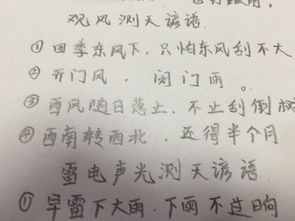 观风测天谚语.
① 四季东风下,只怕东风刮不大
② 开门风,闭门雨。
③ 西风随日落止,不止刮倒树
④ 西南转西北,还得半个月
雷电声光测天谚语
① 早雷下大雨,下雨不过晌